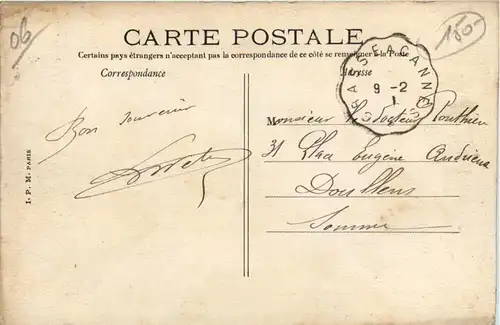 06
150-
CARTE POSTALE
Certains pays étrangers n'acceptant pas la correspondance de ce côté se renseigner à la Poste
Correspondance
Adresse
GRASSE A CANNES
9 -2
1
Bon souvenir
Monsieur le docteur Pouthier
31 Place Eugène Andrieu
Doullens
Somme
I. P. M. PARIS